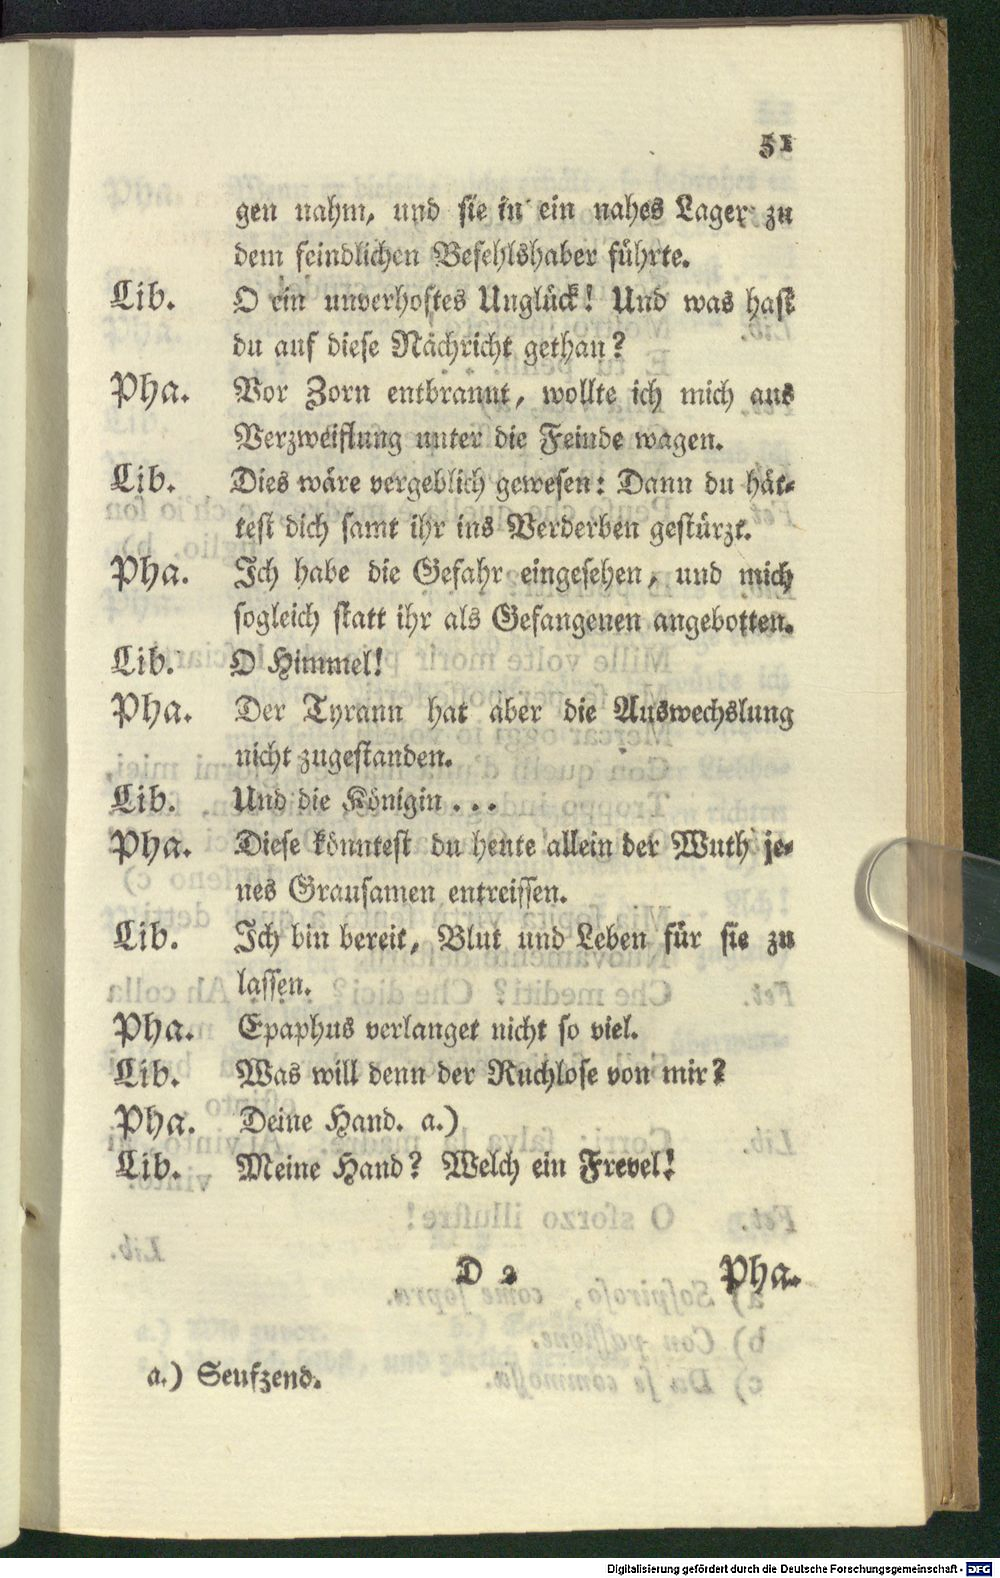 51
gen nahm, und sie in ein nahes Lager zu
dem feindlichen Befehlshaber führte.
Lib. O ein unverhoftes Unglück! Und was hast
du auf diese Nachricht gethan?
Pha. Vor Zorn entbrannt, wollte ich mich aus
Verzweiflung unter die Feinde wagen.
Lib. Dies wäre vergeblich gewesen: Dann du hät-
test dich samt ihr ins Verderben gestürzt.
Pha. Ich habe die Gefahr eingesehen, und mich
sogleich statt ihr als Gefangenen angebotten.
Lib. O Himmel!
Pha. Der Tyrann hat aber die Auswechslung
nicht zugestanden.
Lib. Und die Königin . . .
Pha. Diese könntest du heute allein der Wuth je-
nes Grausamen entreissen.
Lib. Ich bin bereit, Blut und Leben für sie zu
lassen.
Pha. Epaphus verlanget nicht so viel.
Lib. Was will denn der Ruchlose von mir?
Pha. Deine Hand. a.)
Lib. Meine Hand? Welch ein Frevel!
D 2 Pha.
a.) Seufzend.
Digitalisierung gefördert durch die Deutsche Forschungsgemeinschaft - DFG